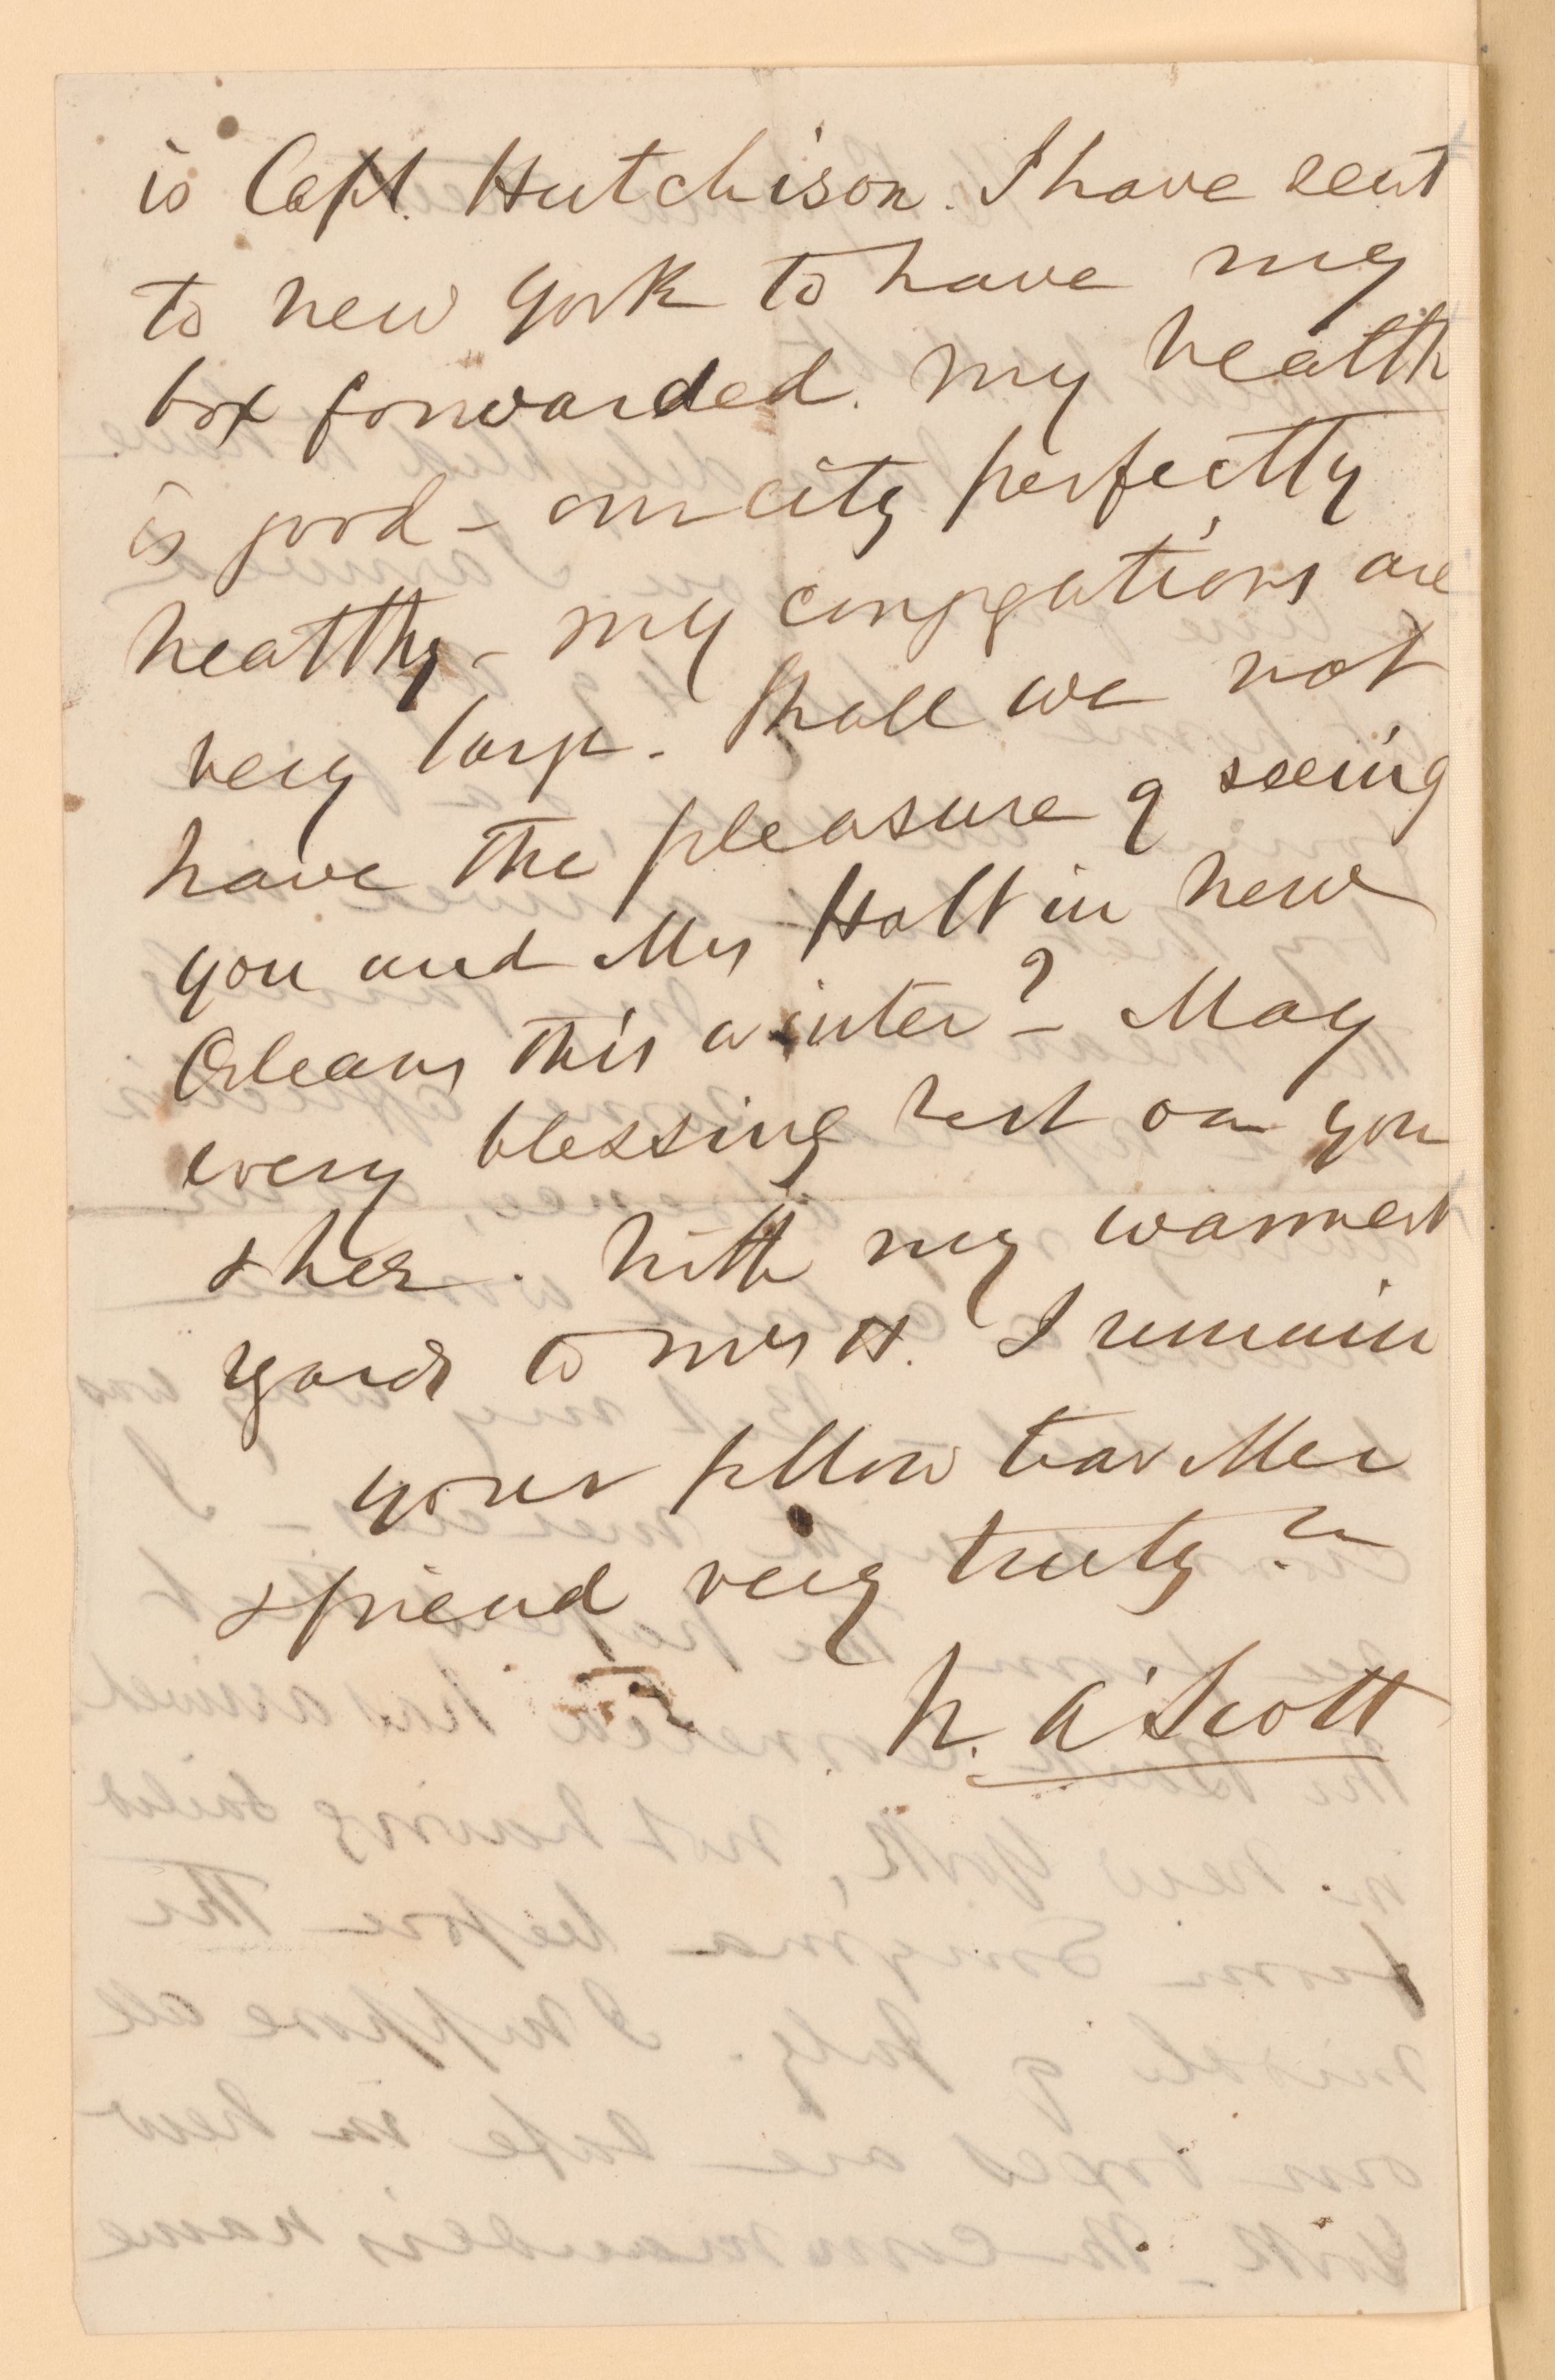 is Capt. Hutchison. I have sent
to new York to have my
box forwarded. my health
is good - our city perfectly
healthy - my congregations are
very large. Shall we not
have the pleasure of seeing
you and Mrs Holt in new
Orleans this winter? - May
every blessing rest on you
& her. With my warmest
regards to Mrs H. I remain
your fellow traveller
& friend very truly
W. A. Scott